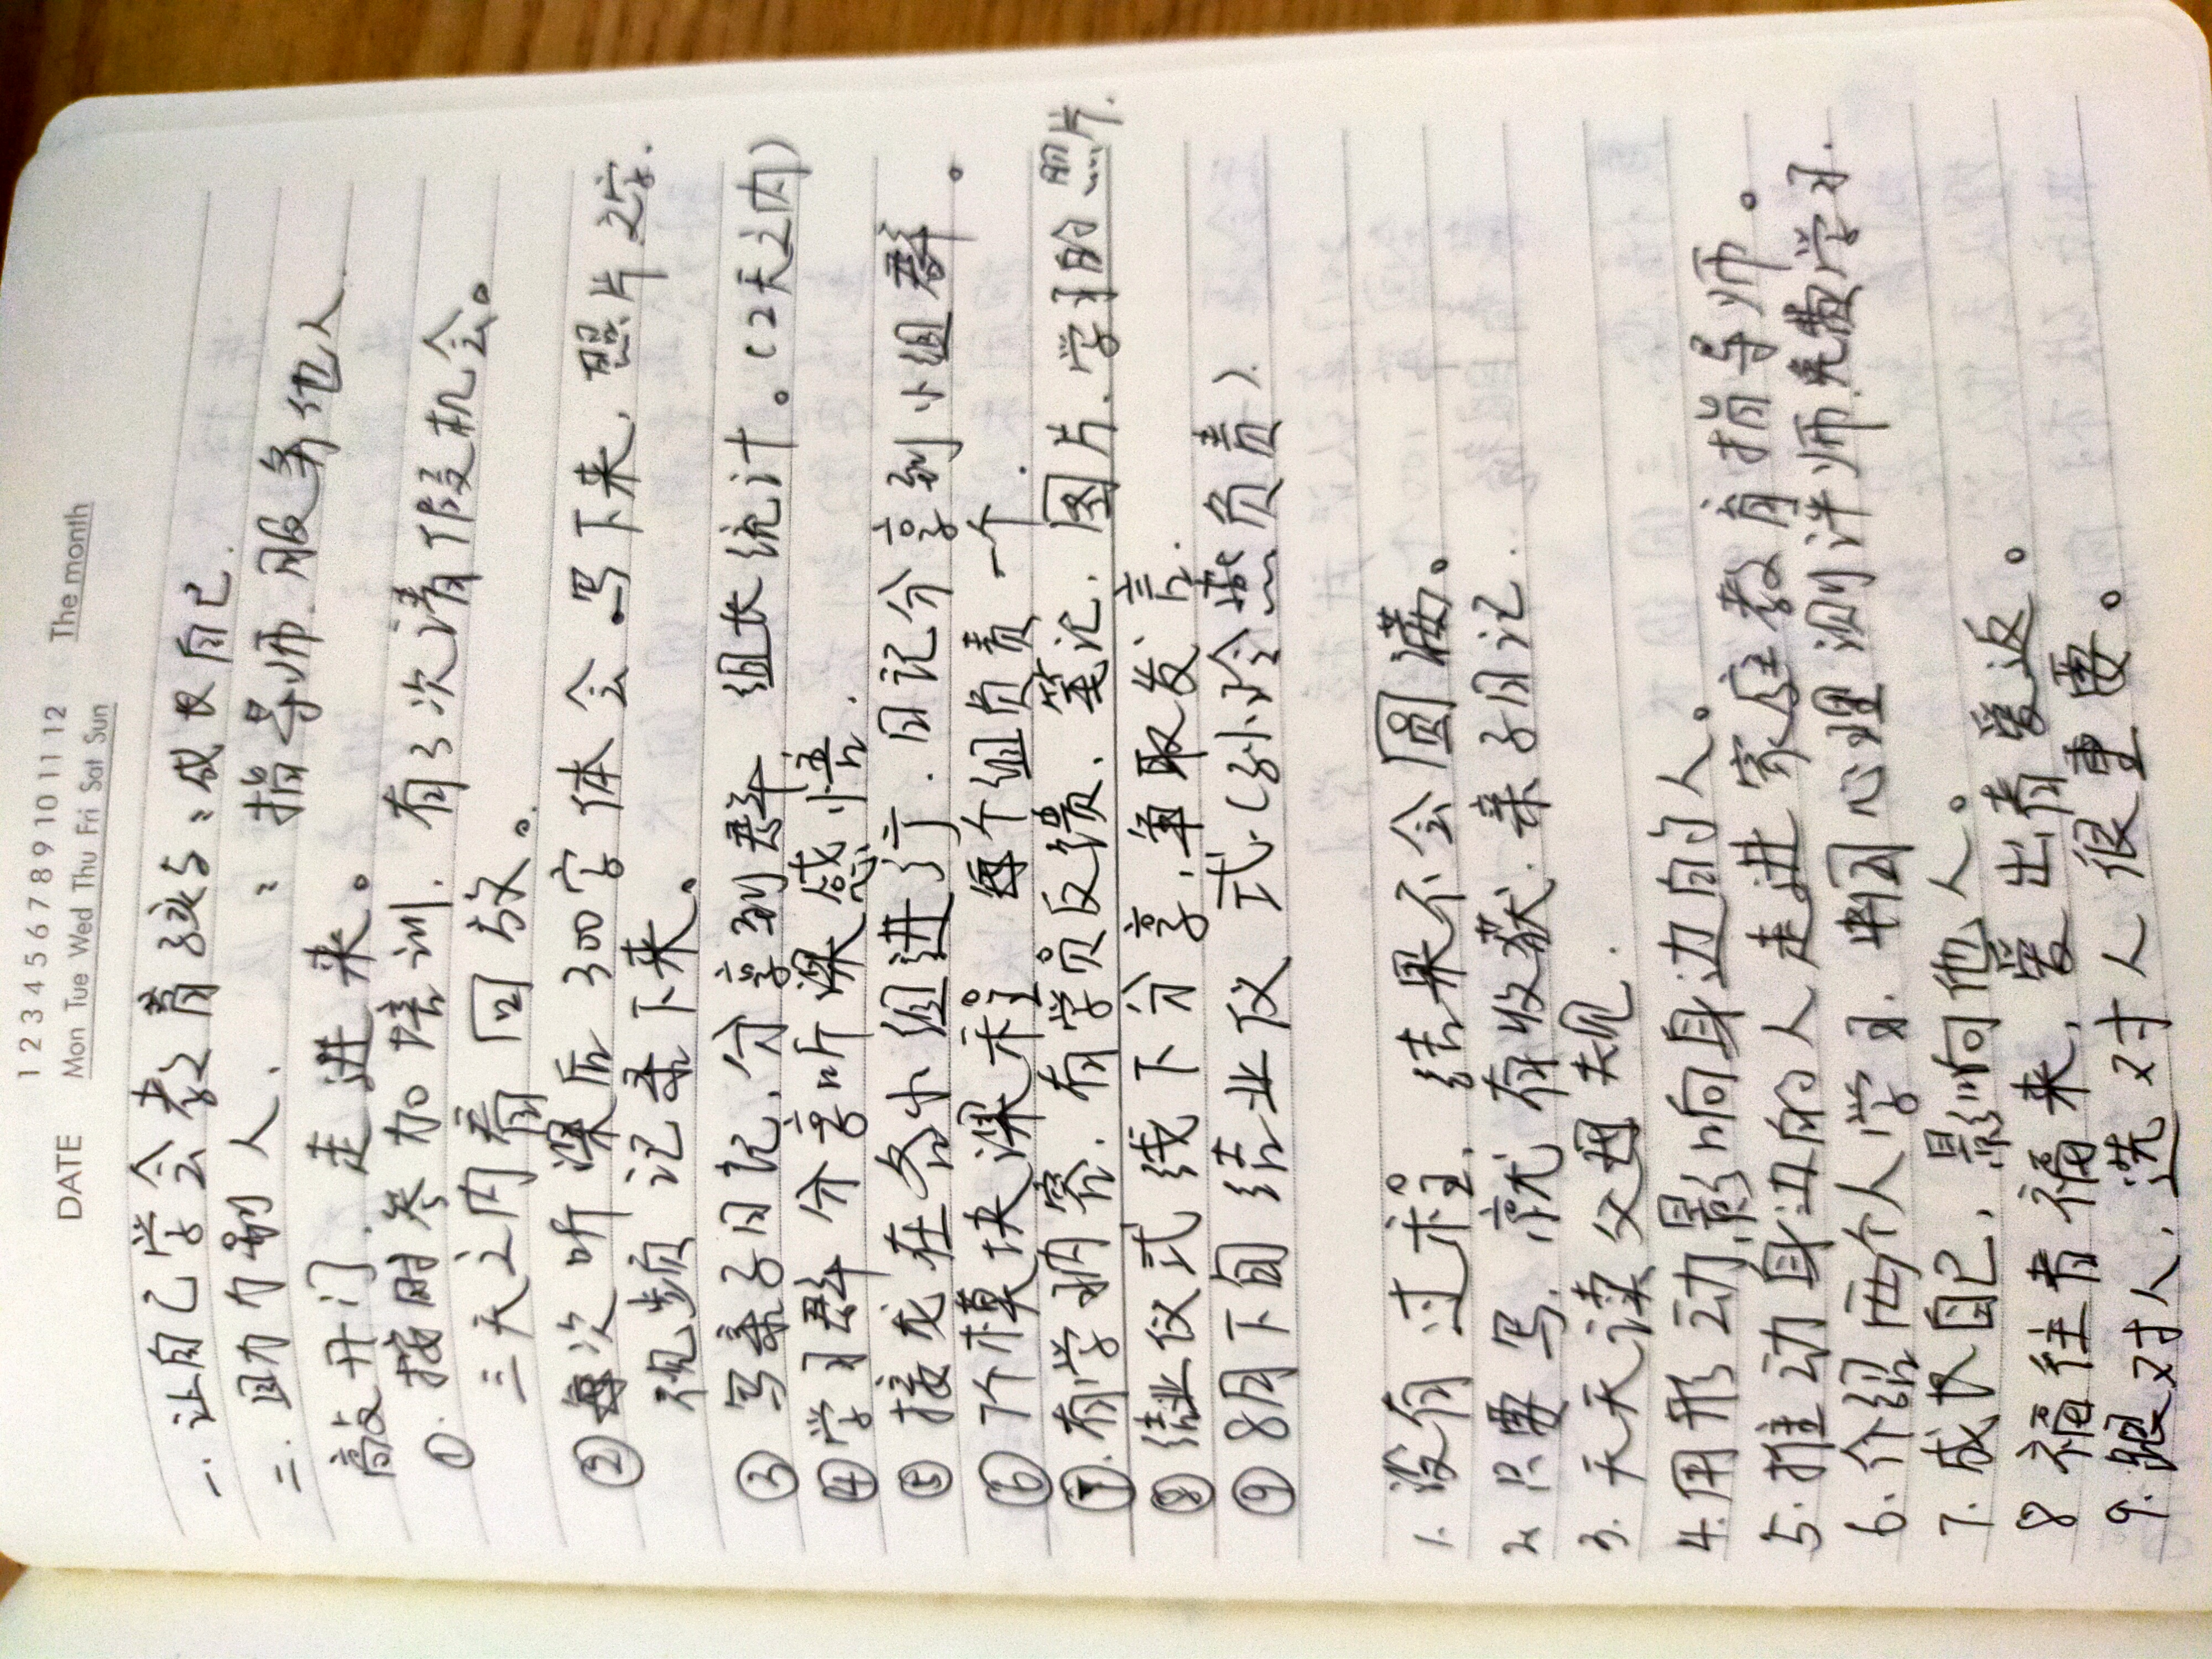 DATE 1 2 3 4 5 6 7 8 9 10 11 12 The month
Mon Tue Wed Thu Fri Sat Sun
一. 让自己学会教育孩子：成长自己.
二. 助力别人. ：指导师. 服务他人.
敲开门. 走进来。
①. 按时参加培训. 有3次请假机会。
三天之内看回放。
② 每次听课后 300字体会. 写下来, 照片2字.
视频记录下来。
③ 写亲子日记, 分享到群 组长统计。(2天之内)
④ 学习群 分享听课感悟.
⑤ 接龙在各小组进行. 日记分享到小组群。
⑥ 7个模块课程 每个组负责一个.
⑦. 有学期内容. 有学员反馈、笔记. 图片. 学习的照片.
⑧ 结业仪式线下分享. 争取发言.
⑨ 8月下旬结业仪式. (孙小玲. 负责).
1. 没有过程. 结果不会圆满。
2. 只要写. 就有收获. 亲子日记.
3. 天天读父母规.
4. 用形动影响身边的人。
5. 推动身边的人走进家庭教育指导师。
6. 介绍两个人学习. 中国心理测评师. 免费学习.
7. 成长自己, 影响他人。
8 福往者福来, 爱出者爱返。
9. 跟对人. 选对人很重要。